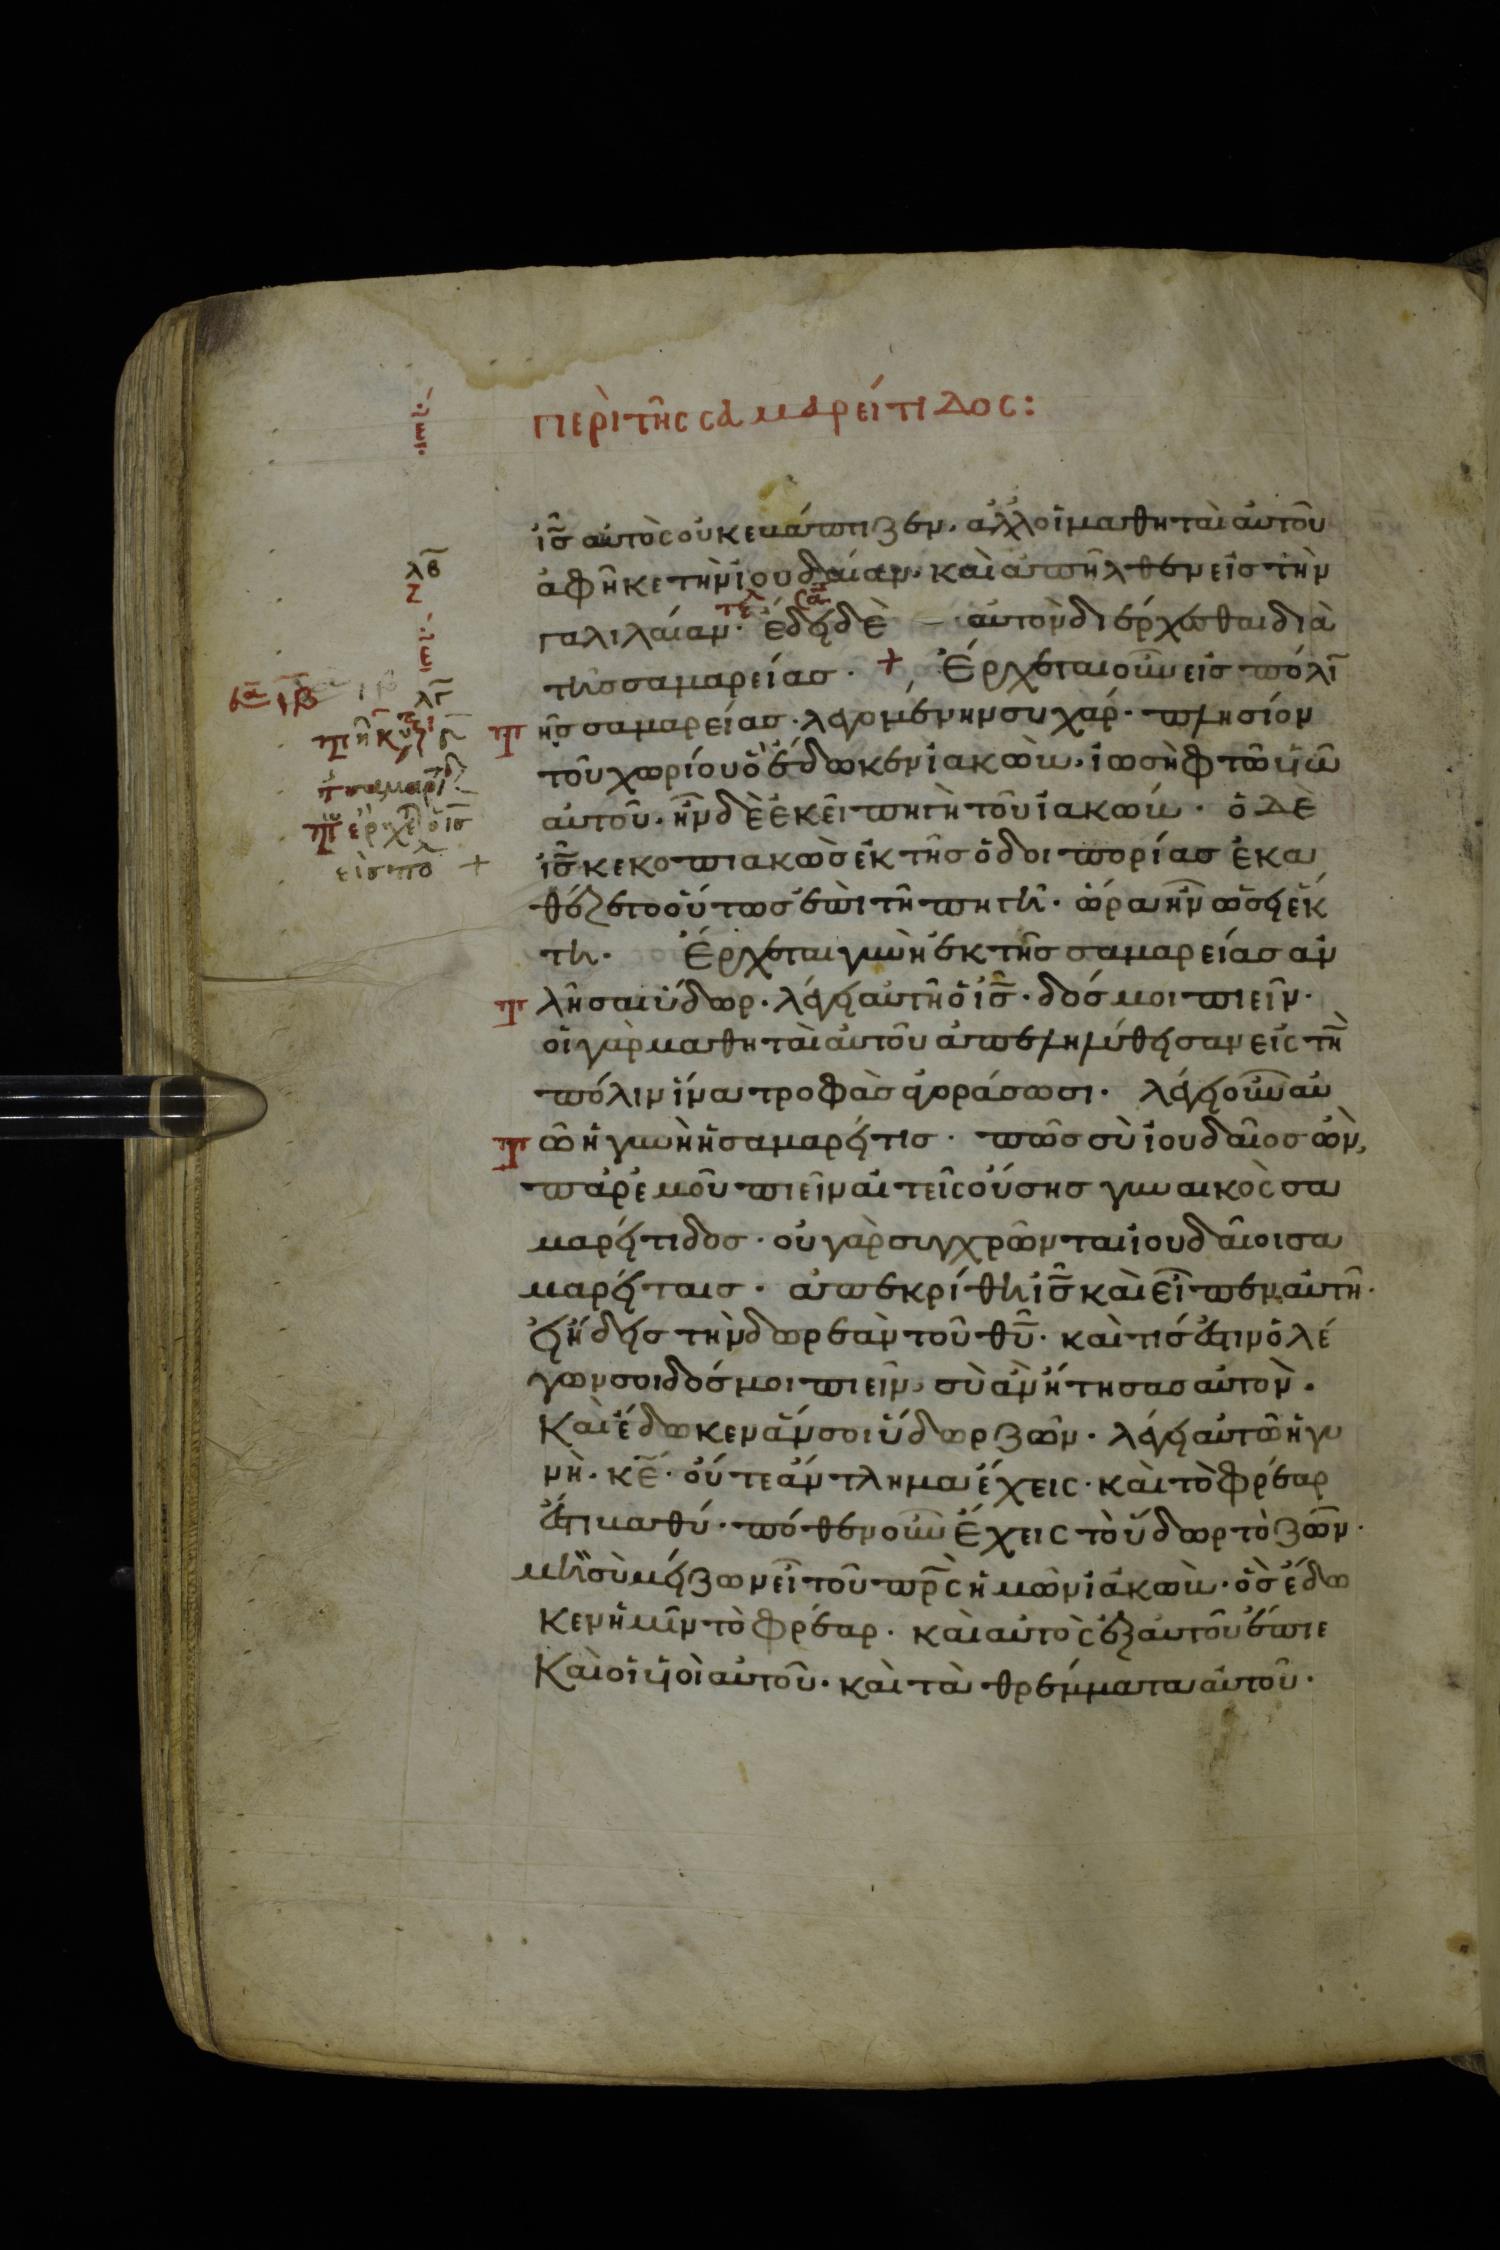 περὶ τῆς σαμαρείτιδος:
ε
ις αὐτὸς οὐκ ἐβάπτιζεν. ἀλλ οἱ μαθηταὶ αὐτοῦ
λβ
ζ
ἀφῆκε τὴν ἰουδαίαν. καὶ ἀπῆλθεν εἰς τὴν
τελ σα
γαλιλαίαν. ἔδει δὲ αὐτὸν διέρχεσθαι διὰ
ε
λγ
τῆς σαμαρείας. + Ἔρχεται οὖν εἰς πόλι
τῆς σαμαρείας. λεγομένην συχάρ. πλησίον
τοῦ χωρίου ὃ ἔδωκεν ἰακὼβ. ἰωσὴφ τῶ υἱῶ
αὐτοῦ. ἦν δὲ ἐκεῖ πηγὴ τοῦ ἰακώβ. ὁ δὲ
ις κεκοπιακὼς ἐκ τῆς ὁδοιπορίας ἐκα
εἰς πολ +
θέζετο οὕτως ἐπὶ τῆ πηγῆ. ὥρα ἦν ὡσεὶ ἕκ
τη. Ἔρχεται γυνὴ ἐκ τῆς σαμαρείας ἀν
τλῆσαι ὕδωρ. λέγει αὐτῆ ὁ ις. δός μοι πιεῖν.
οἱ γὰρ μαθηταὶ αὐτοῦ ἀπεληλύθεισαν εἰς τὴ
πόλιν ἵνα τροφὰς ἀγοράσωσι. λέγει οὖν αὐ
τῶ ἡ γυνὴ ἡ σαμαρεῖτις. πῶς σὺ ἰουδαῖος ὢν,
παρ ἐμοῦ πιεῖν αἰτεῖς οὔσης γυναικὸς σα
μαρείτιδος. οὐ γὰρ συγχρῶνται ἰουδαῖοι σα
μαρείταις. ἀπεκρίθη ις καὶ εἶπεν αὐτῆ.
εἰ ἤδεις τὴν δωρεὰν τοῦ θυ. καὶ τίς ἐστιν ὁ λέ
γων σοι δός μοι πιεῖν, σὺ ἂν ἤτησας αὐτὸν.
Καὶ ἔδωκεν ἄν σοι ὕδωρ ζῶν. λέγει αὐτῶ ἡ γυ
νὴ. κε. οὔτε ἄντλημα ἔχεις. καὶ τὸ φρέαρ
ἐστι βαθύ. πόθεν οὖν ἔχεις τὸ ὕδωρ τὸ ζῶν.
μὴ σὺ μείζων εἶ τοῦ πρς ἡμῶν ἰακὼβ. ὃς ἔδω
κεν ἡμῖν τὸ φρέαρ. καὶ αὐτὸς ἐξ αὐτοῦ ἔπιε
Καὶ οἱ υἱοὶ αὐτοῦ. καὶ τὰ θρέμματα αὐτοῦ.